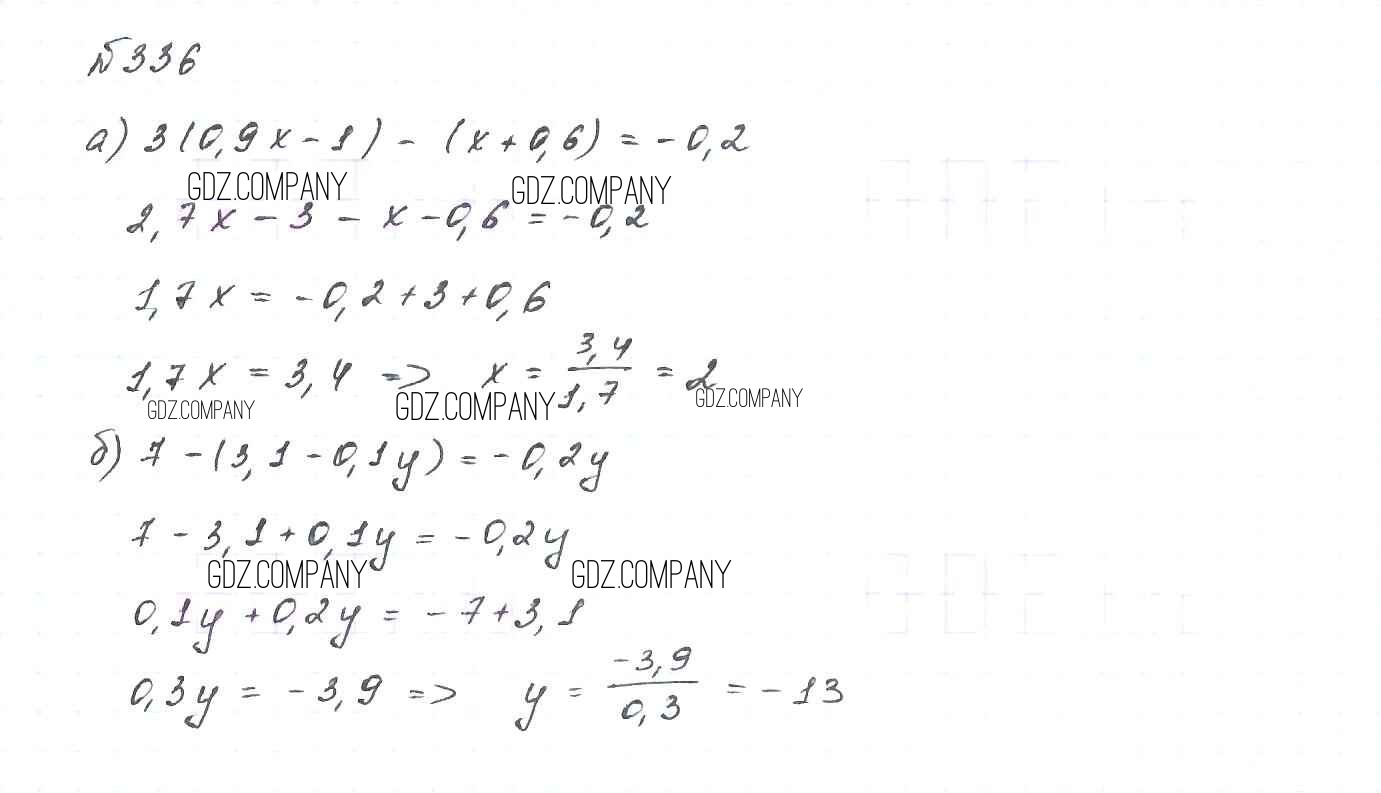 №336
а) 3(0,9x-1) - (x+0,6) = -0,2
GDZ.COMPANY GDZ.COMPANY
2,7x - 3 - x - 0,6 = -0,2
1,7x = -0,2+3+0,6
1,7x = 3,4 => x = 3,4/1,7 = 2
GDZ.COMPANY GDZ.COMPANY GDZ.COMPANY
б) 7 - (3,1 - 0,1y) = -0,2y
7 - 3,1 + 0,1y = -0,2y
GDZ.COMPANY GDZ.COMPANY
0,1y + 0,2y = -7+3,1
0,3y = -3,9 => y = -3,9/0,3 = -13